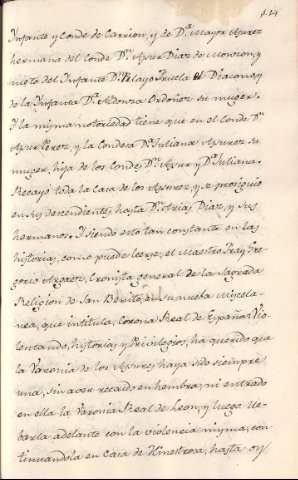 414
Infante y Conde de Carrion, y de D.ª Mayor Asurez
hermana del Conde D.n Asur Diaz de Monzon, y
nieto del Infante D.n Pelayo Fruela el Diacono, y
de la Infanta D.ª Aldonza Ordoñez su muger.
Y la misma notoriedad tiene que en el Conde D.n
Asur Perez, y la Condesa D.ª Juliana Asurez su
muger, hija de los Condes D.n Asur y D.ª Juliana.
Recayó toda la Casa de los Asurez, y se prosiguió
en sus descendientes hasta D.n Arias Diaz, y sus
hermanos. Y siendo esto tan constante en las
historias, como puede leerse, el Maestro Fray Gre-
gorio Argaez, Cronista general de la Sagrada
Religion de San Benito, en su nueva miscela-
nea, que intitula, Corona Real de España: Vio-
lentando, historias, y Privilegios, ha querido que
la Varonia de los Asurez haya sido siempre
una, sin aver recaido en hembra, ni entrado
en ella la Varonia Real de Leon, y luego lle-
barla adelante con la violencia misma, con-
tinuandola en Casa de Hinestrosa, hasta oy